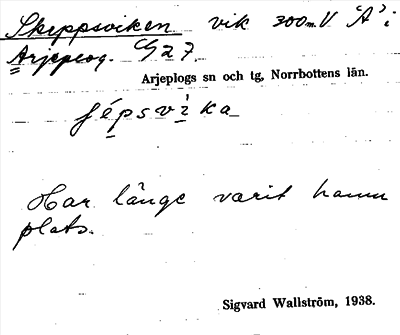 Skeppsviken vik 300 m. V "A" i
Arjeplog. G 27.
Arjeplogs sn och tg, Norrbottens län.
Har länge varit hamn
plats.
Sigvard Wallström, 1938.